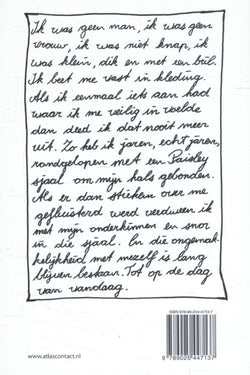 Ik was geen man, ik was geen
vrouw, ik was niet knap, ik
was klein, dik en met een bril.
Ik beet me vast in kleding.
Als ik eenmaal iets aan had
waar ik me veilig in voelde
dan deed ik dat nooit meer
uit. Zo heb ik jaren, echt jaren,
rondgelopen met een Paisley
sjaal om mijn hals gebonden.
Als er dan stiekem over me
gefluisterd werd verdween ik
met mijn onderkinnen en snor
in die sjaal. En die ongemak-
kelijkheid met mezelf is lang
blijven bestaan. Tot op de dag
van vandaag.
ISBN 978-90-254-4713-7
9789025447137
www.atlascontact.nl